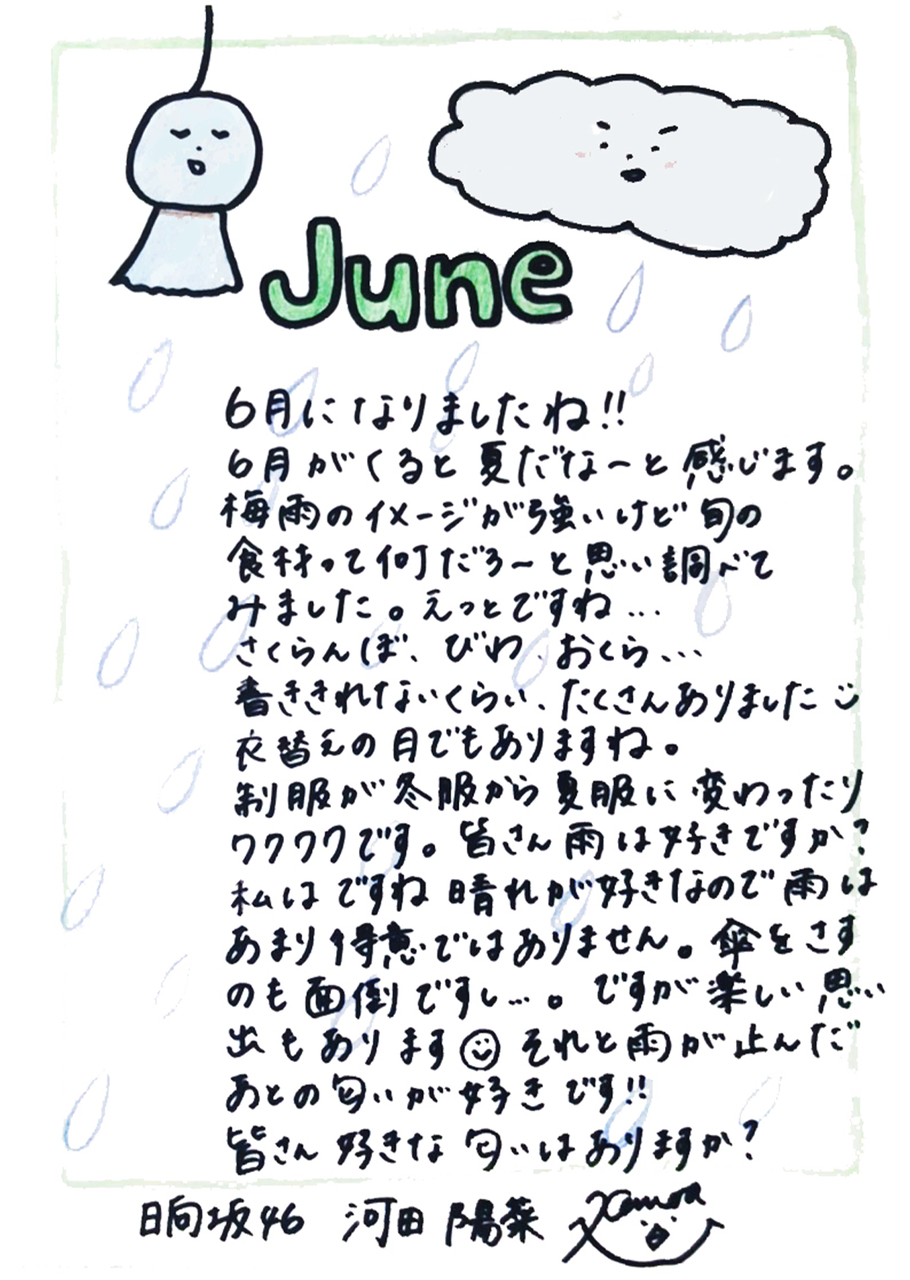 June
6月になりましたね!!
6月がくると夏だなーと感じます。
梅雨のイメージが強いけど旬の
食材って何だろ〜と思い調べて
みました。えっとですね…
さくらんぼ、びわ、おくら…
書ききれないくらい、たくさんありました
衣替えの月でもありますね。
制服が冬服から夏服に変わったり
ワクワクです。皆さん雨は好きですか?
私はですね晴れが好きなので雨は
あまり得意ではありません。傘をさす
のも面倒ですし…。ですが楽しい思い
出もあります それと雨が止んだ
あとの匂いが好きです!!
皆さん好きな匂いはありますか?
日向坂46 河田陽菜